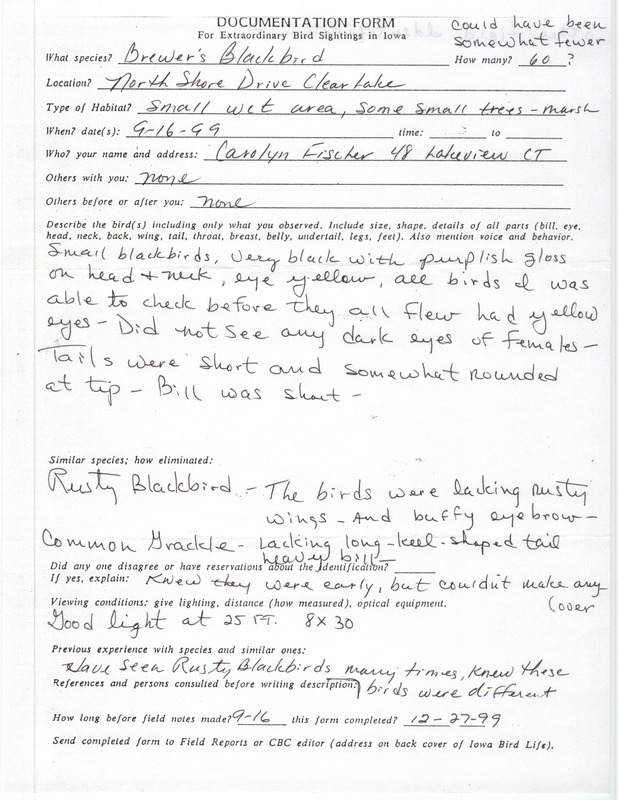 DOCUMENTATION FORM
For Extraordinary Bird Sightings in Iowa
could have been
somewhat fewer
What species? Brewer's Blackbird How many? 60 ?
Location? North Shore Drive Clear Lake
Type of Habitat? Small wet area, some small trees - marsh
When? date(s): 9-16-99 time: ? to
Who? your name and address: Carolyn Fischer 48 Lakeview CT
Others with you: none
Others before or after you: none
Describe the bird(s) including only what you observed. Include size, shape, details of all parts (bill, eye,
head, neck, back, wing, tail, throat, breast, belly, undertail, legs, feet). Also mention voice and behavior.
Small blackbirds, very black with purplish gloss
on head & neck, eye yellow, all birds I was
able to check before they all flew had yellow
eyes - Did not see any dark eyes of females -
Tails were short and somewhat rounded
at tip - Bill was short -
Similar species; how eliminated:
Rusty Blackbird - The birds were lacking rusty
wings - And buffy eyebrow -
Common Grackle - Lacking long-keel-shaped tail
heavy bill -
Did any one disagree or have reservations about the identification?
If yes, explain: Knew they were early, but couldn't make any
Viewing conditions: give lighting, distance (how measured), optical equipment. (over
Good light at 25 FT. 8x30
Previous experience with species and similar ones:
Have seen Rusty Blackbirds many times, knew these
References and persons consulted before writing description: birds were different
How long before field notes made? 9-16 this form completed? 12-27-99
Send completed form to Field Reports or CBC editor (address on back cover of Iowa Bird Life).